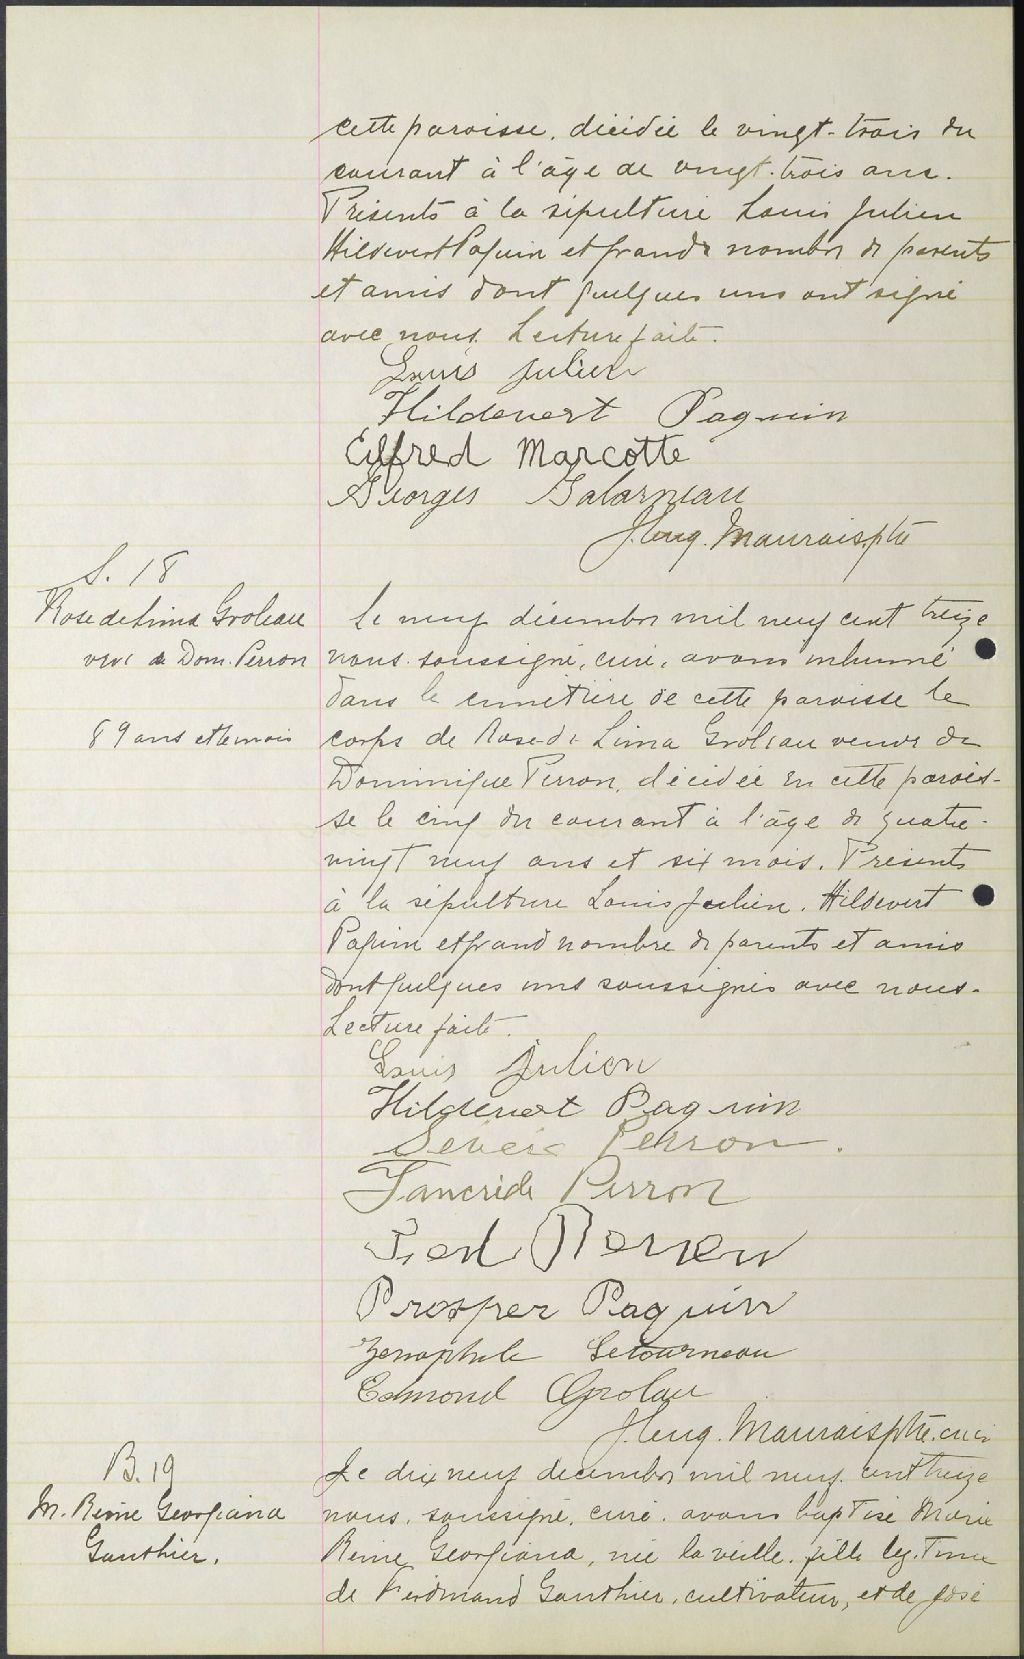 cette paroisse, décédée le vingt-trois du
courant à l'âge de vingt-trois ans.
Présents à la sépulture Louis Julien
Hildevert Paquin et grand nombre de parents
et amis dont quelques uns ont signé
avec nous. Lecture faite.
Louis Julien
Hildevert Paquin
Elfred Marcotte
Georges Galarneau
J. Eug. Maurais, ptre
S. 18
Rose de Lima Groleau
veuve de Dom. Perron
89 ans et 6 mois
Le neuf décembre mil neuf cent treize
nous soussigné, curé, avons inhumé
dans le cimetière de cette paroisse le
corps de Rose-de Lima Groleau veuve de
Dominique Perron, décédée en cette parois-
se le cinq du courant à l'âge de quatre-
vingt neuf ans et six mois. Présents
à la sépulture Louis Julien, Hildevert
Paquin et grand nombre de parents et amis
dont quelques uns soussignés avec nous.
Lecture faite.
Louis Julien
Hildevert Paquin
Perron.
Tancrède Perron
Perron
Prosper Paquin
Zénophile Letourneau
Edmond Grolau
J. Eug. Maurais ptre. curé
B. 19
M. Reine Georgiana
Gauthier.
Le dix neuf décembre mil neuf cent treize
nous, soussigné, curé, avons baptisé Marie
Reine Georgiana, née la veille, fille légitime
de Ferdinand Gauthier, cultivateur, et de José